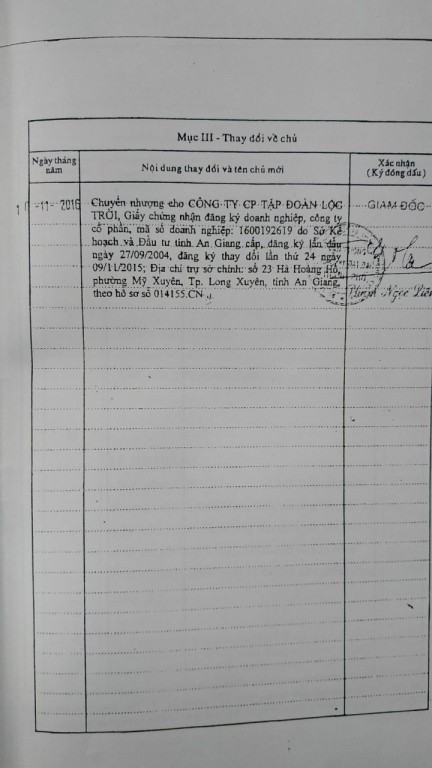 Mục III - Thay đổi về chủ
Ngày tháng năm
Nội dung thay đổi và tên chủ mới
Xác nhận
(Ký đóng dấu)
-11- 2016
Chuyển nhượng cho CÔNG TY CP TẬP ĐOÀN LỘC
TRỜI, Giấy chứng nhận đăng ký doanh nghiệp, công ty
cổ phần, mã số doanh nghiệp: 1600192619 do Sở Kế
hoạch và Đầu tư tỉnh An Giang cấp, đăng ký lần đầu
ngày 27/09/2004, đăng ký thay đổi lần thứ 24 ngày
09/11/2015; Địa chỉ trụ sở chính: số 23 Hà Hoàng Hổ,
phường Mỹ Xuyên, Tp. Long Xuyên, tỉnh An Giang,
theo hồ sơ số 014155.CN
GIÁM ĐỐC
Ngọc